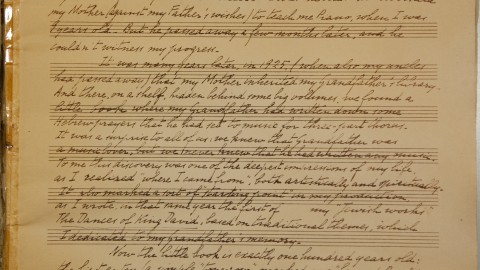 my Mother (against my Father's wishes) to teach me Piano, when I was
years old. But he passed away a few months later, and he
couldn't witness my progress.
It was many years later, in 1925 (when also my uncles
had passed away) that my Mother inherited my grandfather's library.
And there, on a shelf, hidden behind some big volumes, we found a
little book where my Grandfather had written down some
Hebrew prayers that he had set to music for three-part chorus.
It was a surprise to all of us: we knew that Grandfather was
a music lover, but we never knew that he had written any music.
To me this discovery was one of the deepest impressions of my life
as I realized "where I came from", both artistically and spiritually.
It also marked a sort of starting point in my production
as I wrote, in that same year the first of my "Jewish works"
the Dances of King David, based on traditional themes, which
I dedicated to my grandfather's memory.
Now the little book is exactly one hundred years old: